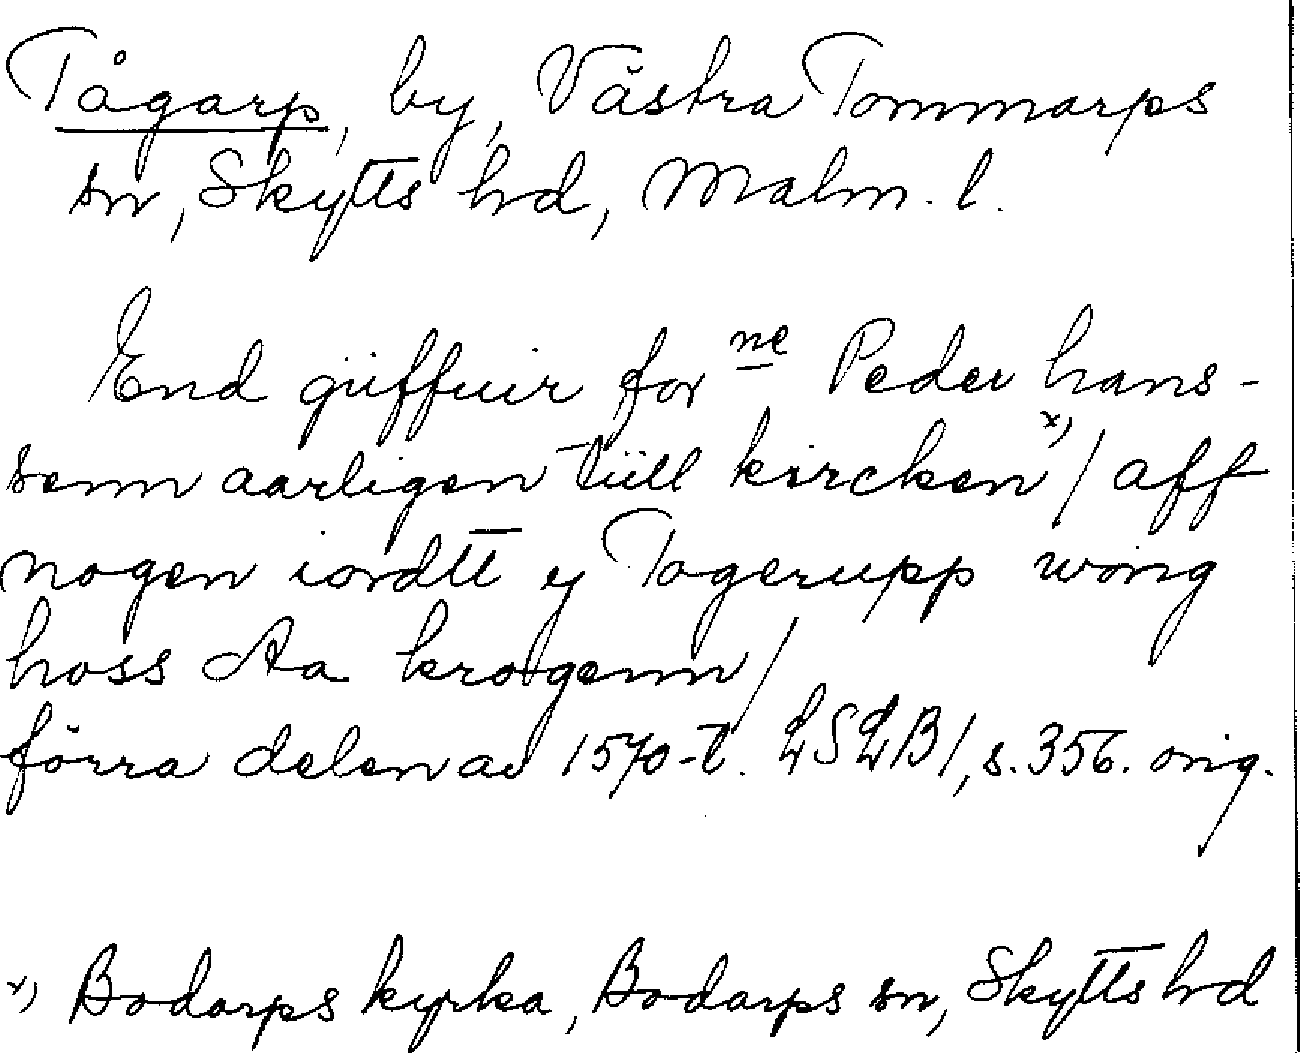 Tågarp, by, Västra Tommarps
sn, Skytts hd, Malm. l.
End giiffuir for ne Peder hans-
senn aarligen tiill kircken x) / aff
nogen iordtt y Togerupp wong
hoss Aa krogenn /
förra delen av 1570-t. LSLB 1, s. 356. orig.
x) Bodarps kyrka, Bodarps sn, Skytts hd